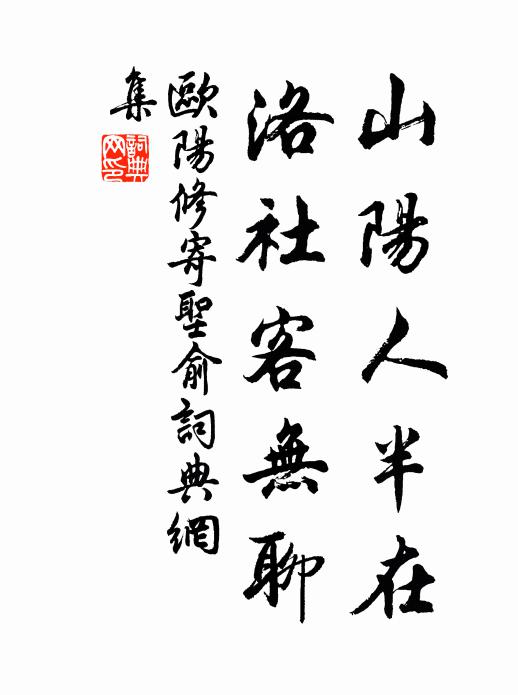 山陽人半在
洛社客無聊
歐陽修寄聖俞詞典網
集
詞典
网印